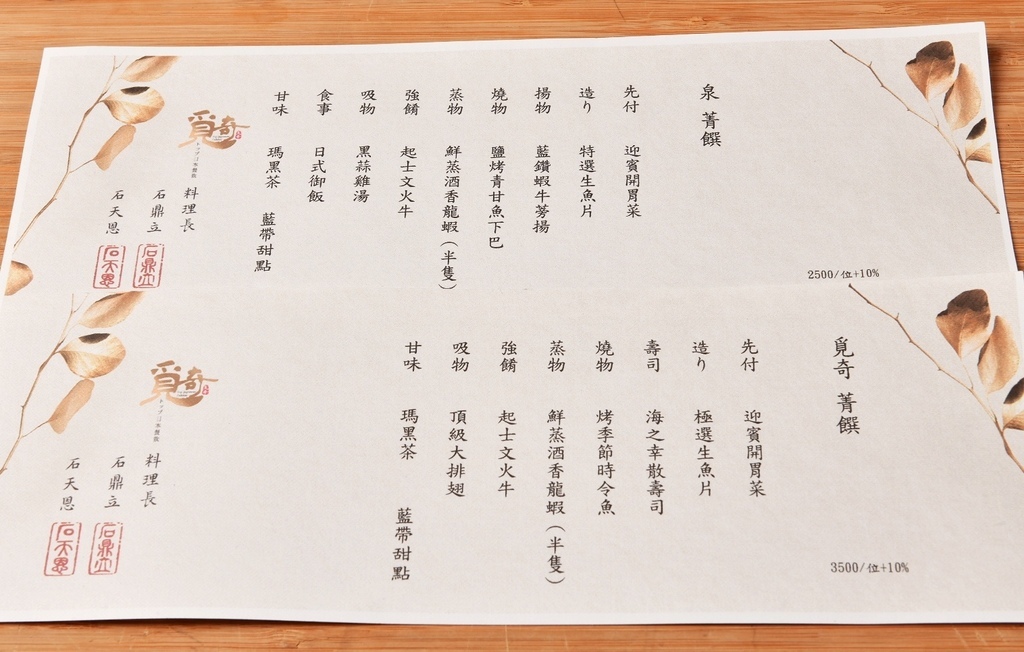 泉 菁饌
先付 迎賓開胃菜
造り 特選生魚片
揚物 藍鑽蝦牛蒡揚
燒物 鹽烤青甘魚下巴
蒸物 鮮蒸酒香龍蝦(半隻)
強餚 起士文火牛
吸物 黑蒜雞湯
食事 日式御飯
甘味 瑪黑茶 藍帶甜點
2500/位+10%
覓奇
料理長
石鼎立
石天恩
石鼎立
石天恩
覓奇 菁饌
先付 迎賓開胃菜
造り 極選生魚片
壽司 海之幸散壽司
燒物 烤季節時令魚
蒸物 鮮蒸酒香龍蝦(半隻)
強餚 起士文火牛
吸物 頂級大排翅
甘味 瑪黑茶 藍帶甜點
3500/位+10%
覓奇
料理長
石鼎立
石天恩
石鼎立
石天恩